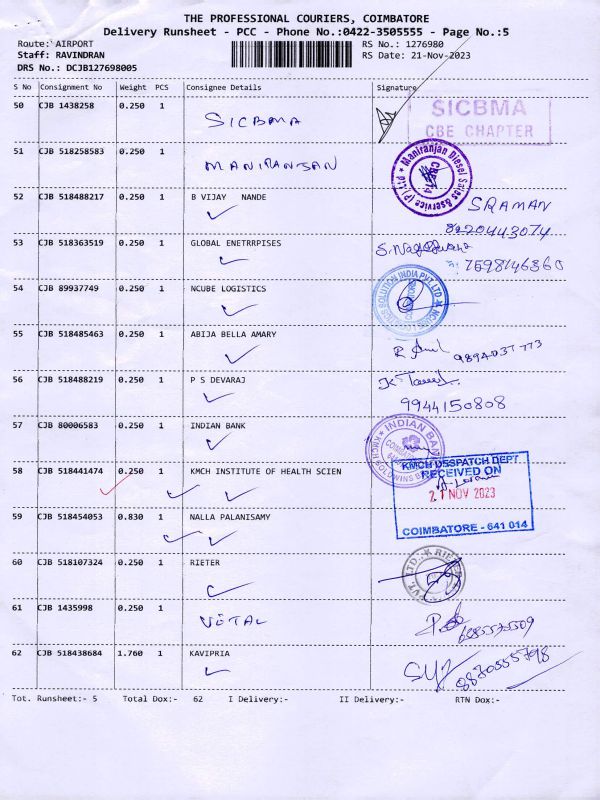 THE PROFESSIONAL COURIERS, COIMBATORE
Delivery Runsheet - PCC - Phone No.:0422-3505555 - Page No.:5
Route: AIRPORT RS No.: 1276980
Staff: RAVINDRAN RS Date: 21-Nov-2023
DRS No.: DCJB127698005
S No Consignment No Weight PCS Consignee Details Signature
50 CJB 1438258 0.250 1 SICBMA
SICBMA
CBE CHAPTER
51 CJB 518258583 0.250 1 MANIRANJAN
Maniranjan Diesel Sales &service (P) Ltd
52 CJB 518488217 0.250 1 B VIJAY NANDE
SRAMAN
8220443074
53 CJB 518363519 0.250 1 GLOBAL ENETRRPISES
7598146860
54 CJB 89937749 0.250 1 NCUBE LOGISTICS
55 CJB 518485463 0.250 1 ABIJA BELLA AMARY
56 CJB 518488219 0.250 1 P S DEVARAJ
9944150808
57 CJB 80006583 0.250 1 INDIAN BANK
INDIAN BANK
58 CJB 518441474 0.250 1 KMCH INSTITUTE OF HEALTH SCIEN
KMCH DESPATCH DEPT
RECEIVED ON
21 NOV 2023
COIMBATORE - 641 014
59 CJB 518454053 0.830 1 NALLA PALANISAMY
60 CJB 518107324 0.250 1 RIETER
61 CJB 1435998 0.250 1 VOTAL
62 CJB 518438684 1.760 1 KAVIPRIA
Tot. Runsheet:- 5 Total Dox:- 62 I Delivery:- II Delivery:- RTN Dox:-